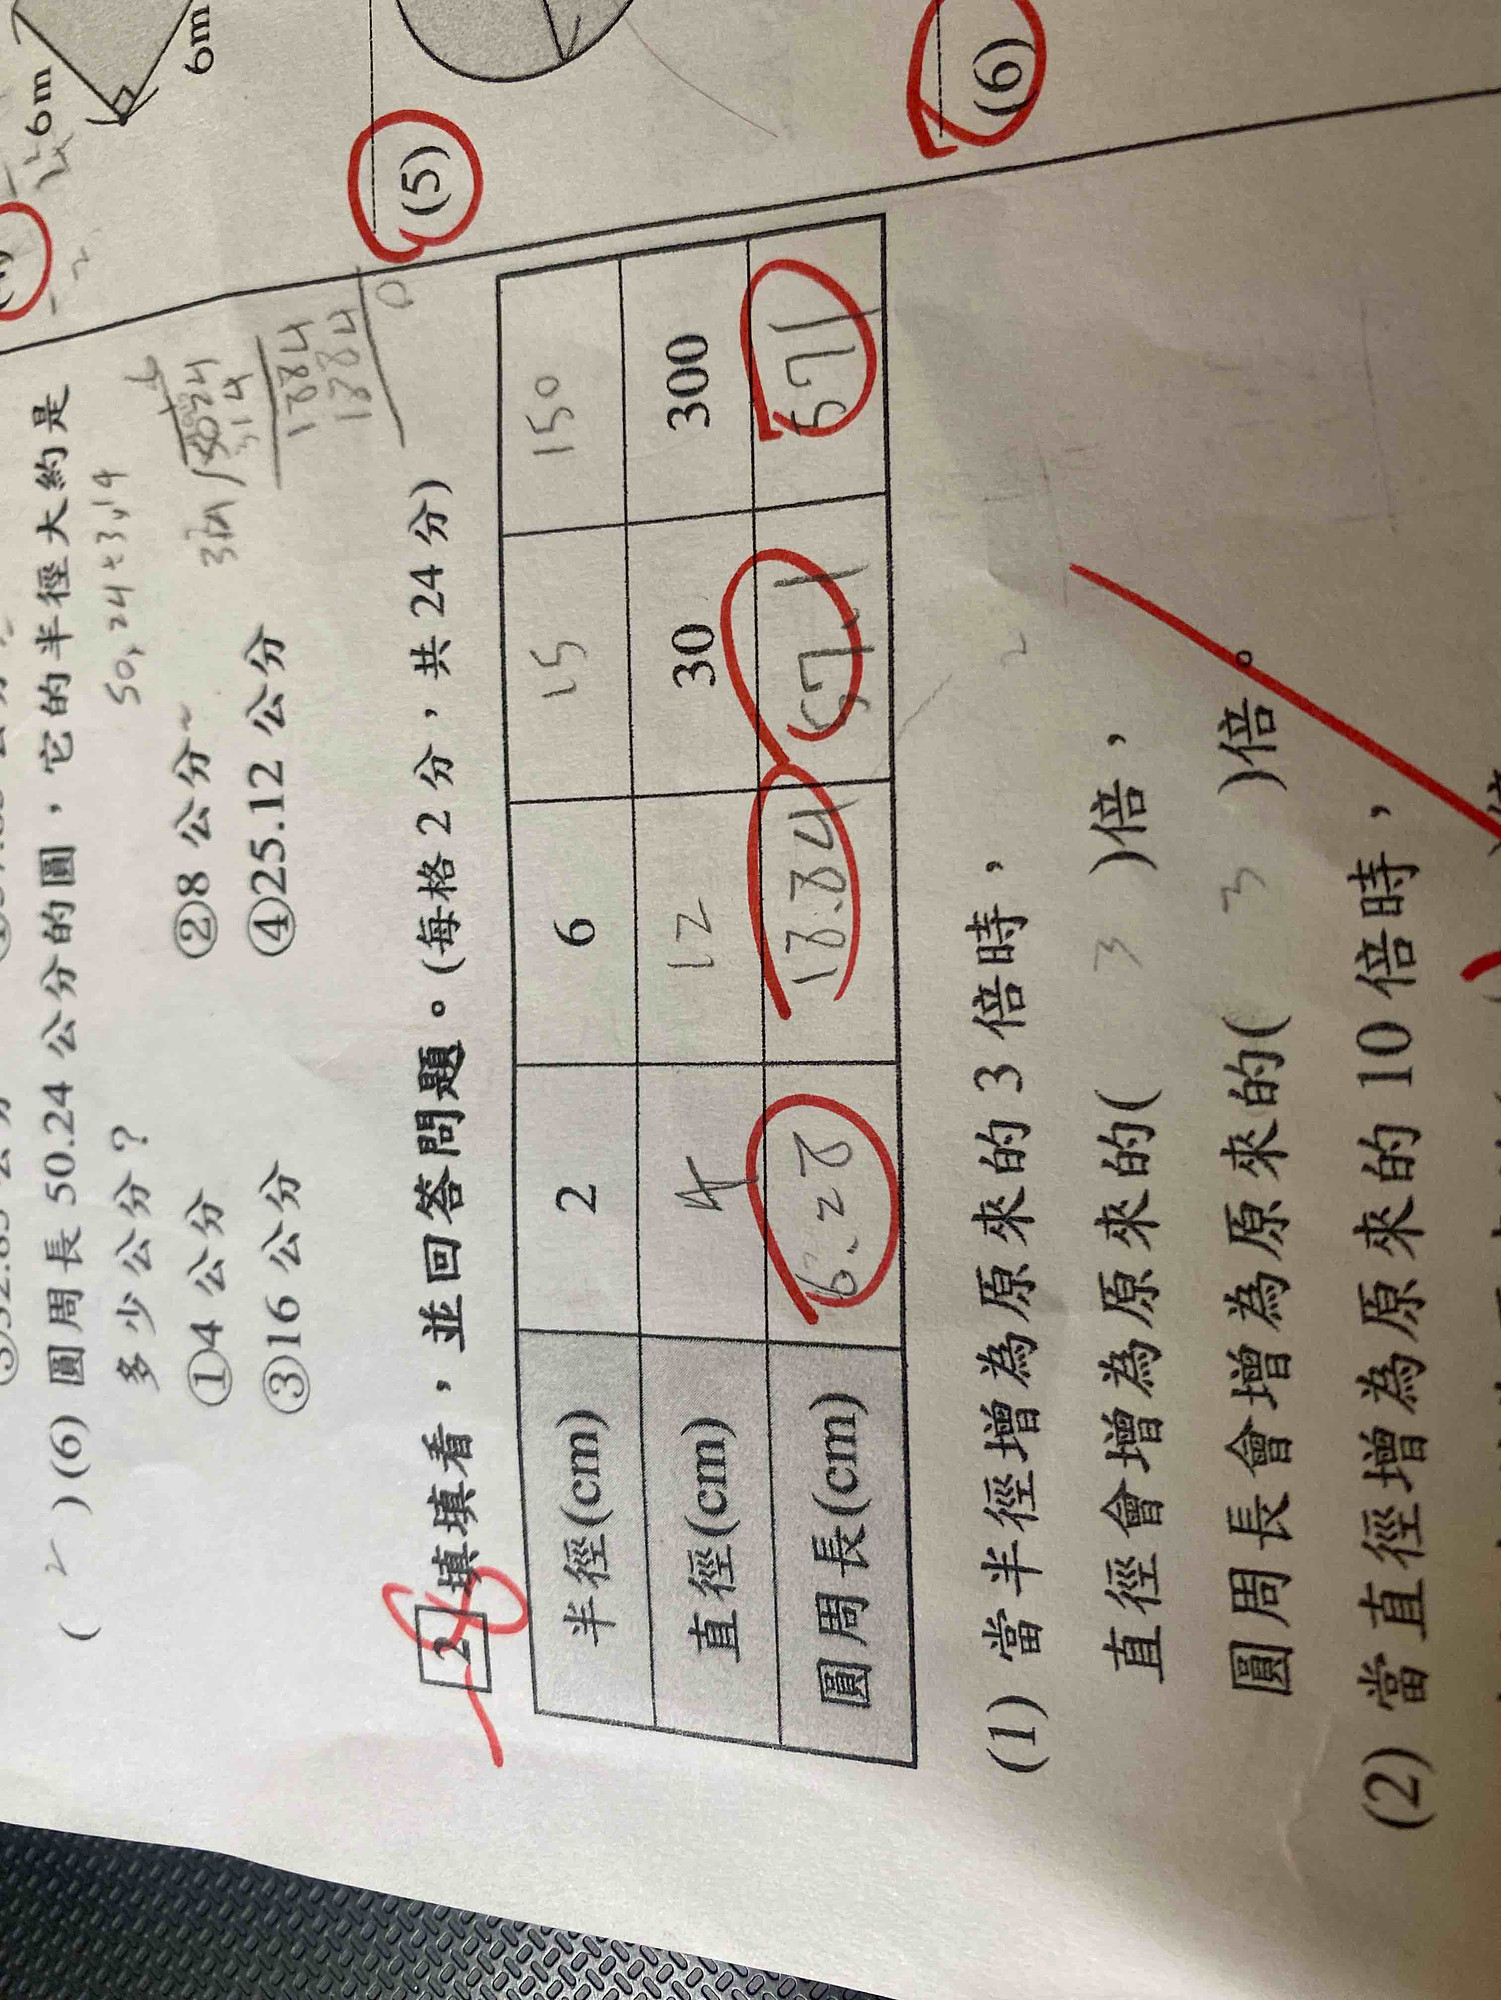 6m
6m
( 2 )(6) 圓周長 50.24 公分的圓，它的半徑大約是
多少公分？
50.24÷3.14
①4 公分 ②8 公分
③16 公分 ④25.12 公分
314
1884
1884
0
2 填填看，並回答問題。(每格 2 分，共 24 分)
半徑(cm) 2 6 15 150
直徑(cm) 4 12 30 300
圓周長(cm) 6.28 18.84 57.1 571
(1) 當半徑增為原來的 3 倍時，
直徑會增為原來的( 3 )倍，
圓周長會增為原來的( 3 )倍。
(2) 當直徑增為原來的 10 倍時，
(5)
(6)